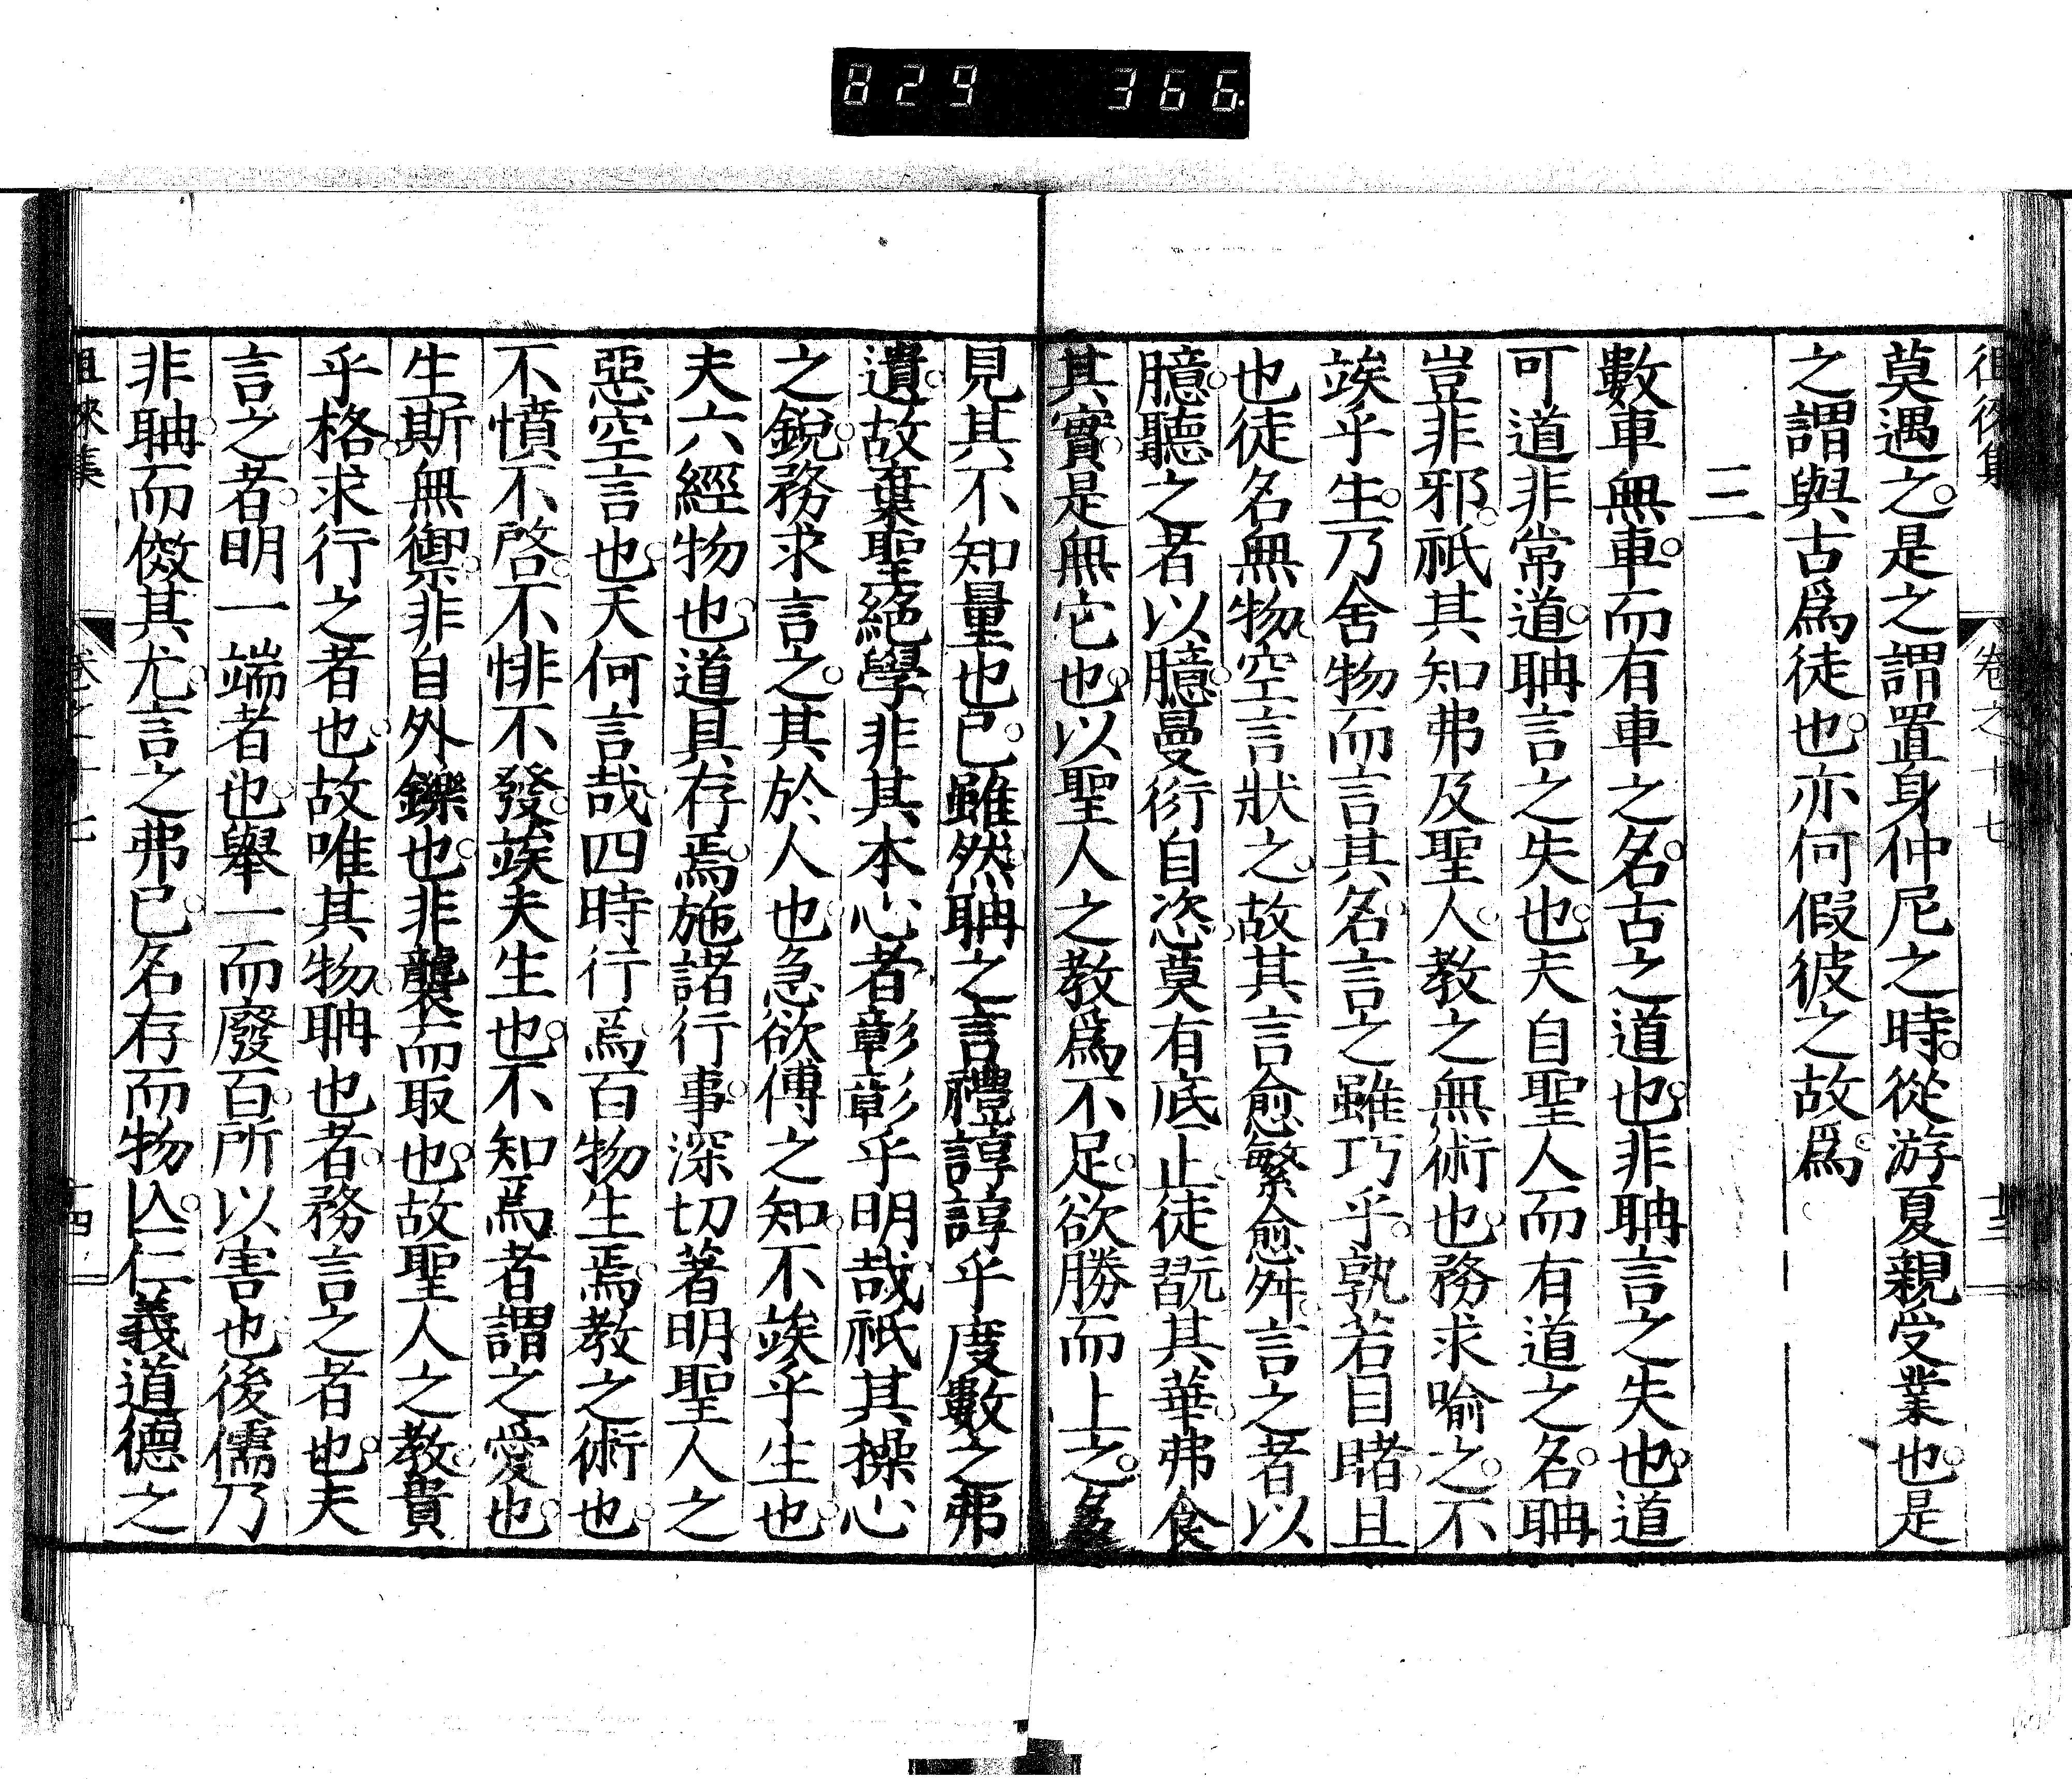 829 366
徂徠集 卷之十七 十三
莫遇之。是之謂置身仲尼之時。從游夏親受業也。是
之謂與古爲徒也。亦何假彼之故爲。
三
數車無車。而有車之名。古之道也。非聃言之失也。道
可道非常道。聃言之失也。夫自聖人而有道之名。聃
豈非邪。祇其知弗及聖人。教之無術也。務求喻之。不
竢乎生。乃舍物而言其名。言之雖巧乎。孰若目睹。且
也徒名無物。空言狀之。故其言愈繁愈舛。言之者以
臆。聽之者以臆。曼衍自恣。莫有底止。徒翫其華。弗食
其實。是無它也。以聖人之教爲不足。欲勝而上之。多
見其不知量也已。雖然聃之言禮諄諄乎度數之弗
遺。故棄聖絕學。非其本心者。彰彰乎明哉。祇其操心
之銳。務求言之。其於人也。急欲傅之知。不竢乎生也。
夫六經物也。道具存焉。施諸行事。深切著明。聖人之
惡空言也。天何言哉。四時行焉。百物生焉。教之術也。
不憤不啓。不悱不發。竢夫生也。不知焉者謂之愛也。
生斯無禦。非自外鑠也。非襲而取也。故聖人之教。貴
乎格。求行之者也。故唯其物。聃也者。務言之者也。夫
言之者。明一端者也。舉一而廢百。所以害也。後儒乃
非聃。而傚其尤。言之弗已。名存而物亾。仁義道德之
徂徠集 卷之十七 十四